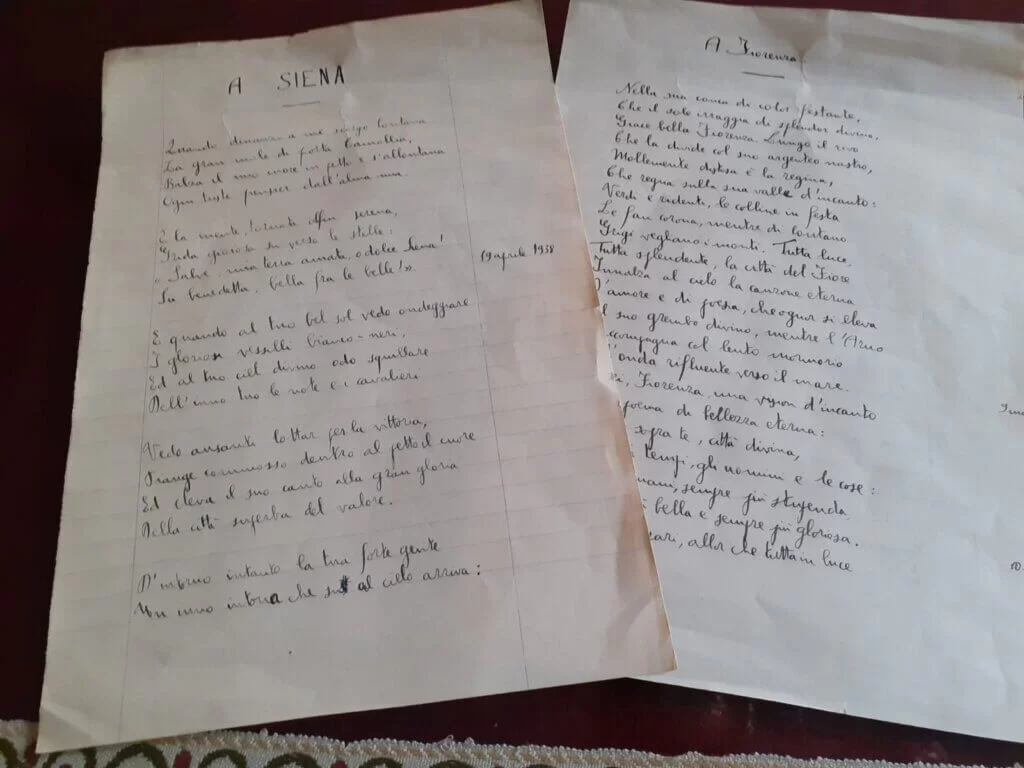 A SIENA
Quando dinanzi a me sorgo lontana
La gran mole di porta Camollia,
Balza il mio cuore in petto e s'allontana
Ogni triste pensier dall'alma mia.
E la mente, tornata alfin serena,
Grida gioiosa su verso le stelle:
"Salve, mia terra amata, o dolce Siena!
Sii benedetta, bella fra le belle!".
19 aprile 1938
E quando al tuo bel sol vedo ondeggiare
I gloriosi vessilli bianco-neri,
Ed al tuo ciel divino odo squillare
Dell'inno tuo le note e i cavalieri
Vedo ansanti lottar per la vittoria,
Piange commosso dentro al petto il cuore
Ed eleva il suo canto alla gran gloria
Della città superba del valore.
D'intorno intanto la tua forte gente
Un inno intona che al cielo arriva:
A Fiorenza
Nella sua conca di color festante,
Che il sole irraggia di splendor divino,
Giace bella Fiorenza. Lungo il rivo
Che la divide col suo argenteo nastro,
Mollemente distesa è la regina,
Che regna sulla sua valle d'incanto:
Verdi e ridenti, le colline in festa
Le fan corona, mentre di lontano
Grigi vegliano i monti. Tutta luce,
Tutta splendente, la città del Fiore
Innalza al cielo la canzone eterna
D'amore e di poesia, che ognor si eleva
l suo grembo divino, mentre l'Arno
compagna col lento mormorio
onda rifluente verso il mare.
ei, Fiorenza, una vision d'incanto
poema di bellezza eterna:
sopra te, città divina,
i tempi, gli uomini e le cose:
mani, sempre più stupenda
bella e sempre più gloriosa.
cari, allor che tutta in luce